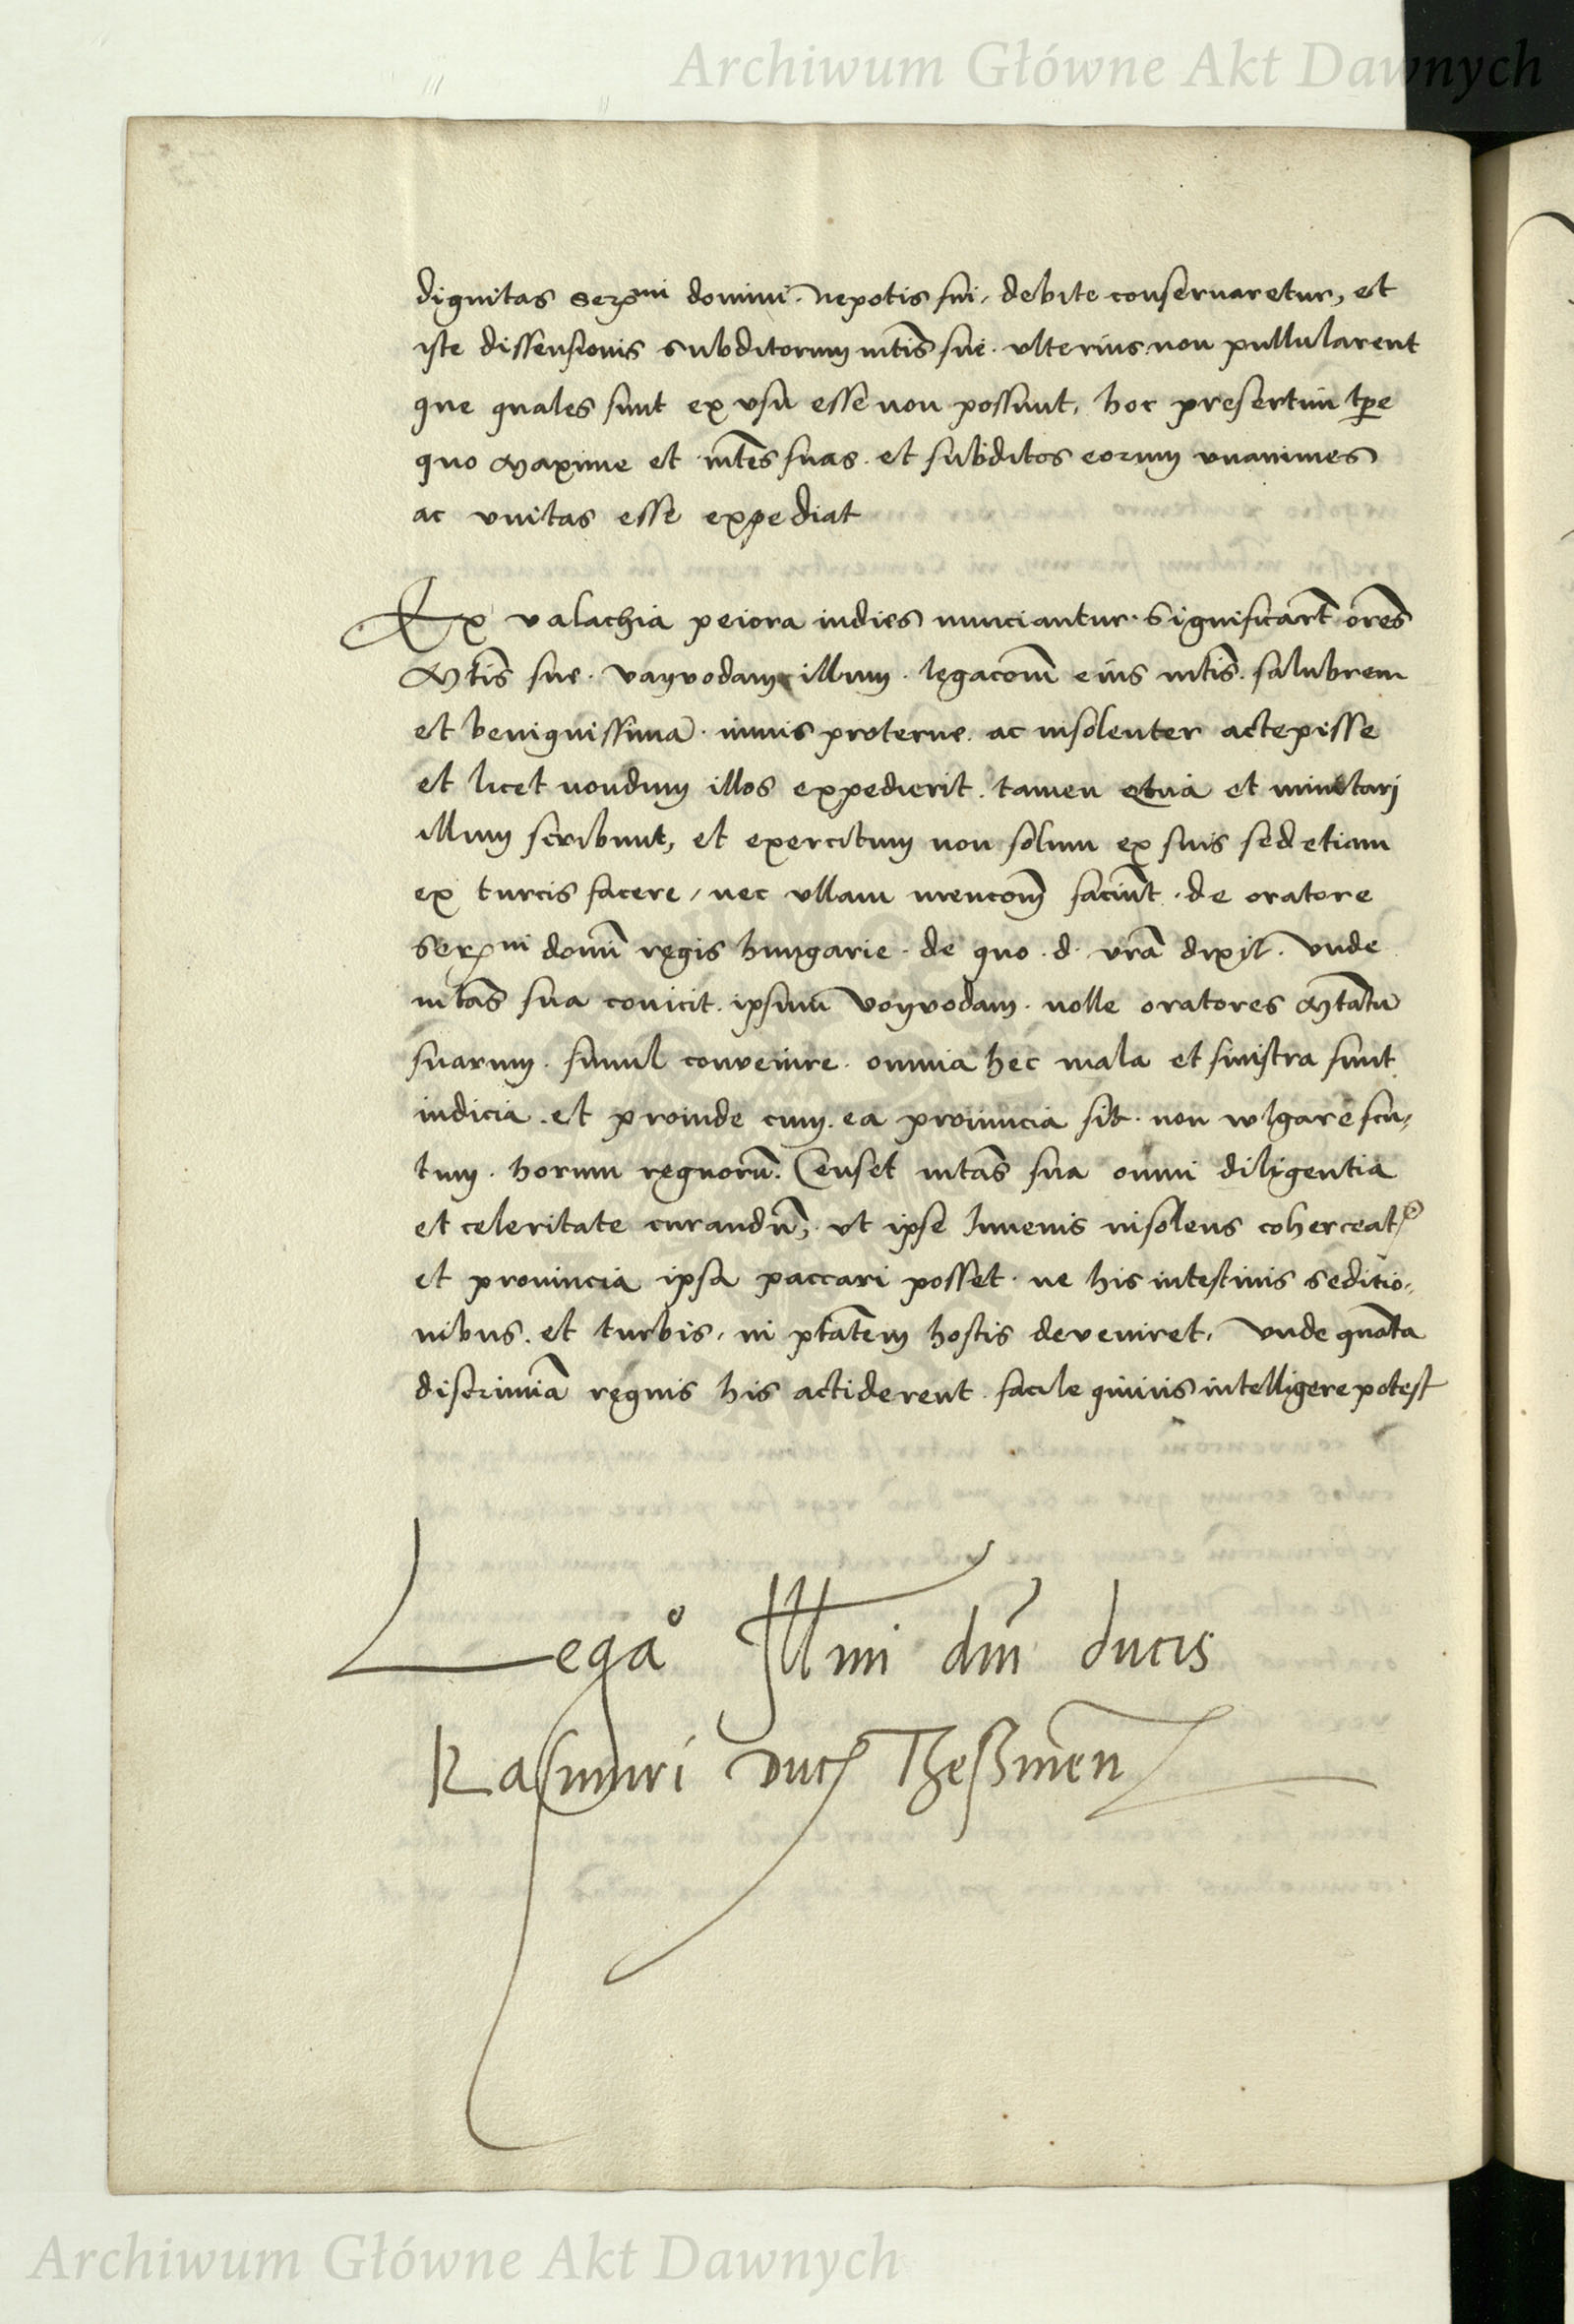 Archiwum Główne Akt Dawnych
dignitas Serᵐⁱ domini nepotis sui, debite conseruaretur, et
iste dissensionis subditorum mtis sue. vlterius non pullularent
que quales sunt ex vsu esse non possunt, hoc presertim tpe
quo Maxime et mtes suas. et subditos eorum vnanimes
ac vnitas esse expediat
Ex valachia peiora indies nunciantur. Significart ores
Mtis sue. vayvodam illum. legacom eius mtis. salubrem
et benignissimā. nimis proterue. ac insolenter accepisse
et licet nondum illos expedierit. tamen et minitari
illum scribunt, et exercitum non solum ex suis sed etiam
ex turcis facere, nec vllam mencom faciunt. de oratore
Serᵐⁱ domi regis hungarie. de quo. d. vra dixit. vnde
mtas sua conicit. ipsum voyvodam. nolle oratores Mtatū
suarum. simul conuenire. omnia hec mala et sinistra sunt
indicia. et proinde cum. ea prouincia sit. non wlgare scu,
tum. horum regnorū. Censet mtas sua omni diligentia
et celeritate curandū, vt ipse Iuuenis insolens coherceatʳ
et prouincia ipsa paccari posset. ne his intestinis seditio,
nibus. et turbis, in ptatem hostis deveniret, vnde quāta
discrimia regnis his acciderent. facile quiuis intelligere potest
Legaº Illmi dni ducis
Kasimiri Duc Theßinen
Archiwum Główne Akt Dawnych